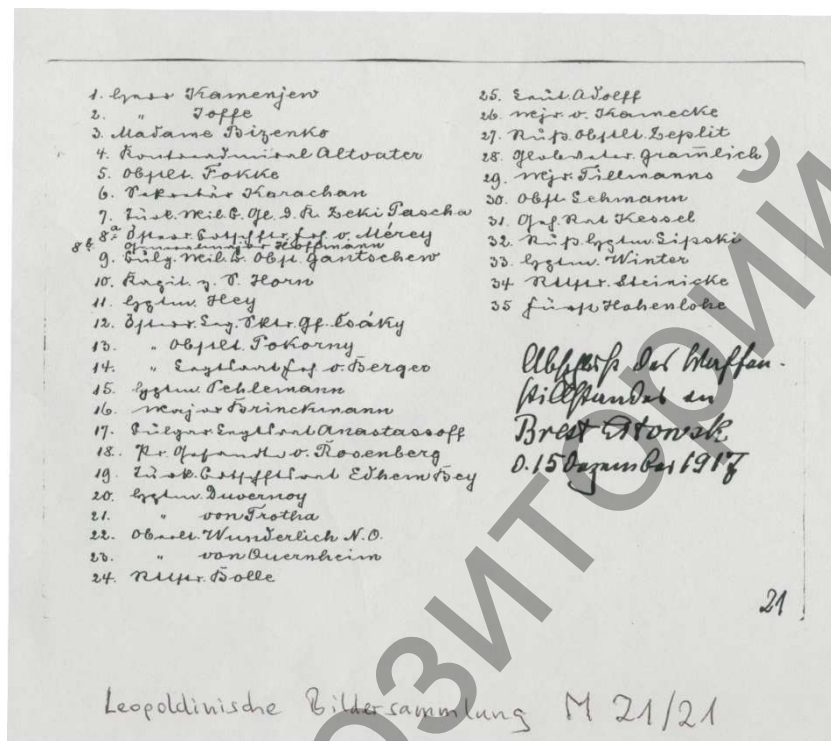 1. Herr Kamenjew
2. " Joffe
3. Madame Bizenko
4. Kontreadmiral Altvater
5. Obstlt. Fokke
6. Sekretär Karachan
7. Türk. Mil. B. Gl. d. K. Zeki Pascha
8a Österr. Botschftr. Frh. v. Mérey
8b Generalmajor Hoffmann
9. Bulg. Mil. B. Obst. Gantschew
10. Kapit. z. S. Horn
11. Hptm. Hey
12. Österr. Leg. Sktr. Gf. Csáky
13. " Obstlt. Pokorny
14. " Legtsrat Frh. v. Berger
15. Hptm. Pehlemann
16. Major Brinckmann
17. Bulgar. Legtsrat Anastassoff
18. Pr. Gesandt. v. Rosenberg
19. Türk. Botschftsrat Edhem Bey
20. Hptm. Duvernoy
21. " von Trotha
22. Oberlt. Wunderlich N.O.
23. " von Quernheim
24. Rittstr. Bolle
25. Leut. Adolff
26. Mjr. v. Kamecke
27. Ruß. Obstlt. Zeplit
28. Grambich
29. Mjr. Tillmanns
30. Obst. Lehmann
31. Geh. Rat Kessel
32. Ruß. Hptm. Lipski
33. Hptm. Winter
34 Rittstr. Steinicke
35 Fürst Hohenlohe
Abschluß des Waffen-
stillstandes in
Brest Litowsk
d. 15 Dezember 1917
21
Leopoldinische Bildersammlung M 21/21
ОЗИТОРИЙ